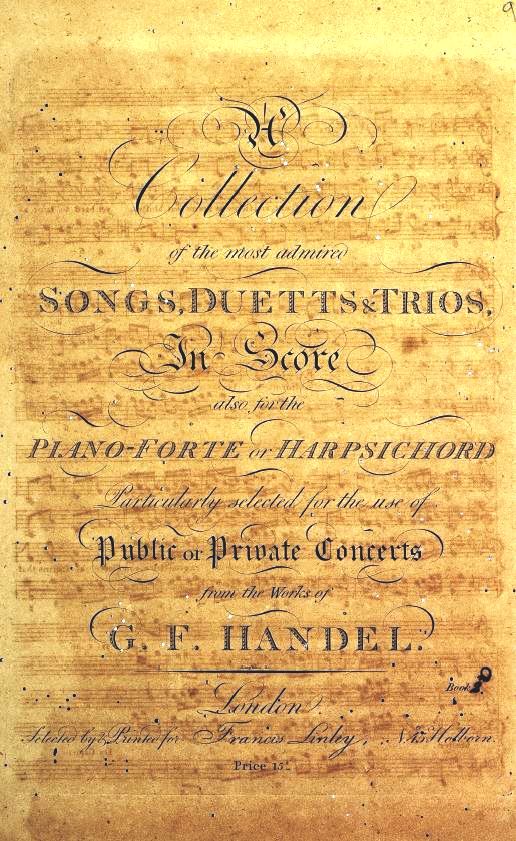 A
Collection
of the most admired
SONGS, DUETTS & TRIOS,
In Score
also for the
PIANO-FORTE or HARPSICHORD
Particularly selected for the use of
Public or Private Concerts
from the Works of
G. F. HANDEL.
Book
London
Selected by & Printed for Francis Linley, No. 45 Holborn.
Price 15s